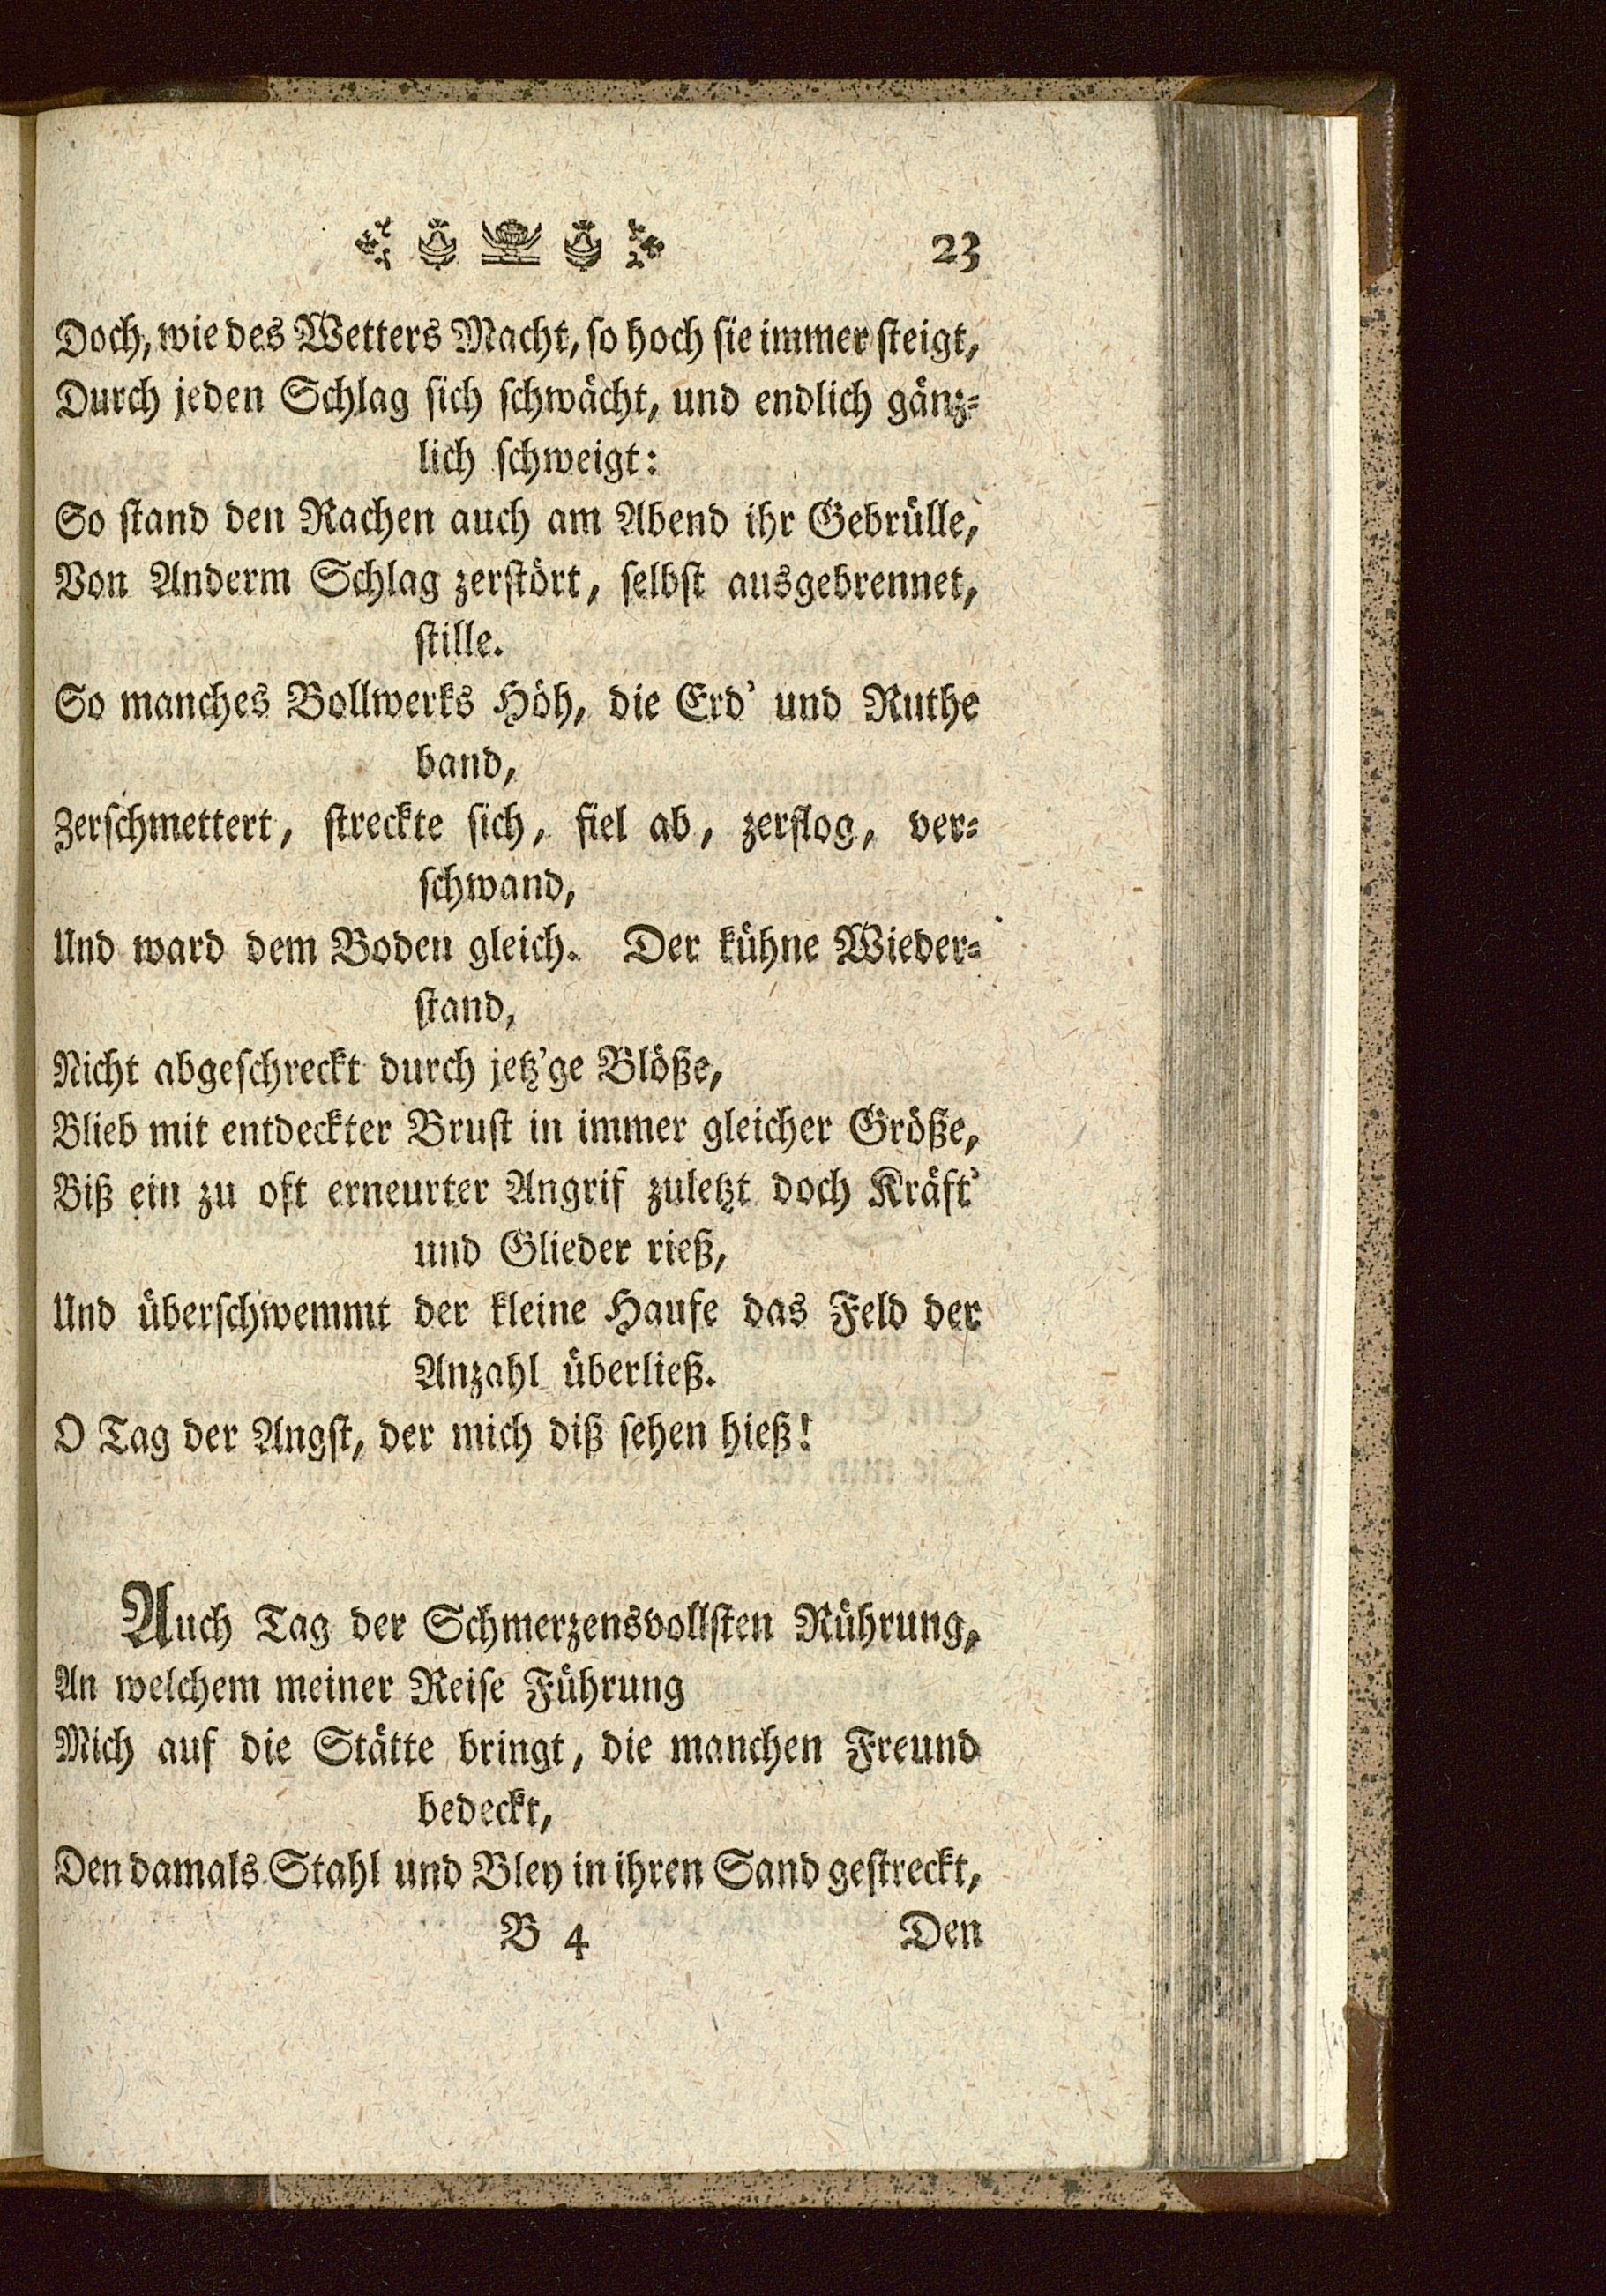 23
Doch, wie des Wetters Macht, so hoch sie immer steigt,
Durch jeden Schlag sich schwächt, und endlich gänz-
lich schweigt:
So stand den Rachen auch am Abend ihr Gebrülle,
Von Anderm Schlag zerstört, selbst ausgebrennet,
stille.
So manches Bollwerks Höh, die Erd' und Ruthe
band,
Zerschmettert, streckte sich, fiel ab, zerflog, ver-
schwand,
Und ward dem Boden gleich. Der kühne Wieder-
stand,
Nicht abgeschreckt durch jetz'ge Blöße,
Blieb mit entdeckter Brust in immer gleicher Größe,
Biß ein zu oft erneurter Angrif zuletzt doch Kräft'
und Glieder rieß,
Und überschwemmt der kleine Haufe das Feld der
Anzahl überließ.
O Tag der Angst, der mich diß sehen hieß!
Auch Tag der Schmerzensvollsten Rührung,
An welchem meiner Reise Führung
Mich auf die Stätte bringt, die manchen Freund
bedeckt,
Den damals Stahl und Bley in ihren Sand gestreckt,
B 4 Den